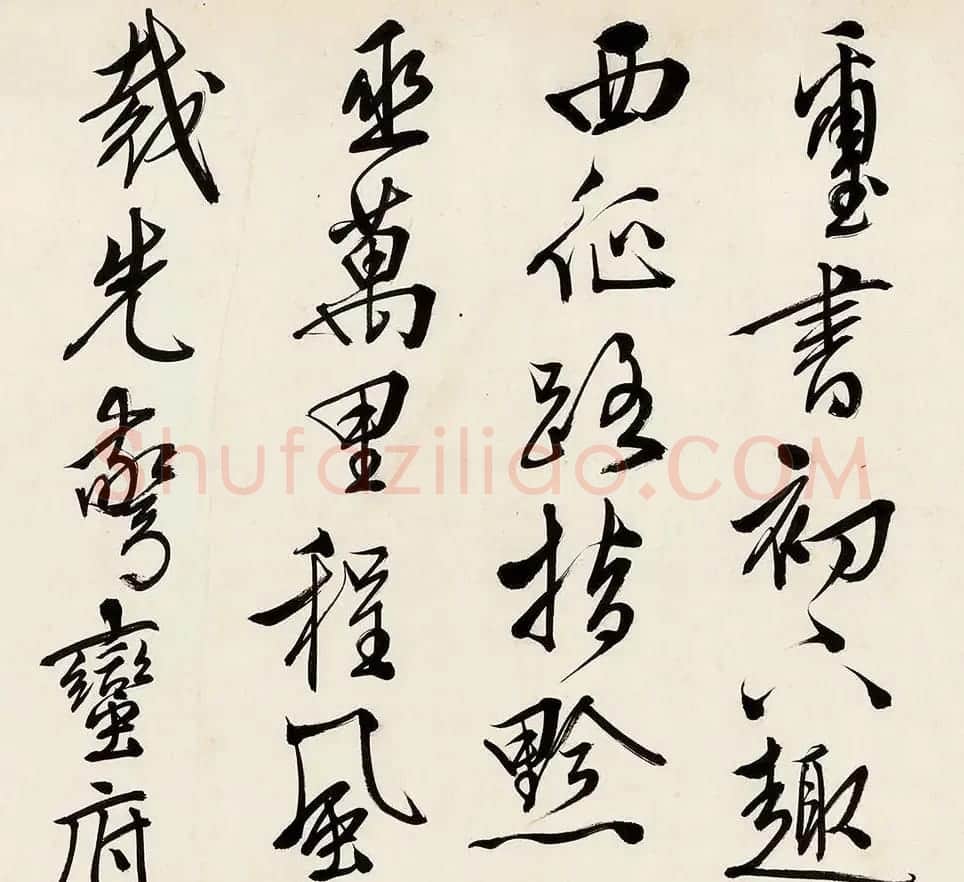 璽書初下趣
西征路指黔
巫萬里程風
裁先驚蠻府
Shufaziliao.COM